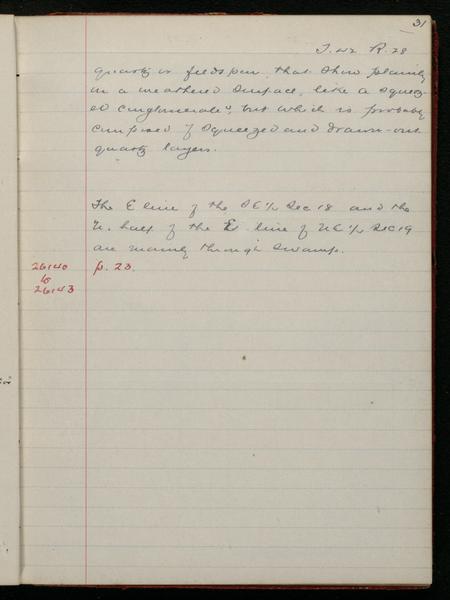 31
T. 42 R. 28
quartz or feldspar, that show plainly
in a weathered surface, like a squeez-
ed conglomerate", but which is probably
composed of squeezed and drawn-out
quartz layers.
The E line of the SE¼ Sec 18 and the
N. half of the E. line of NE¼ Sec 19
are mainly through swamp.
26140
to
26143
p. 23.